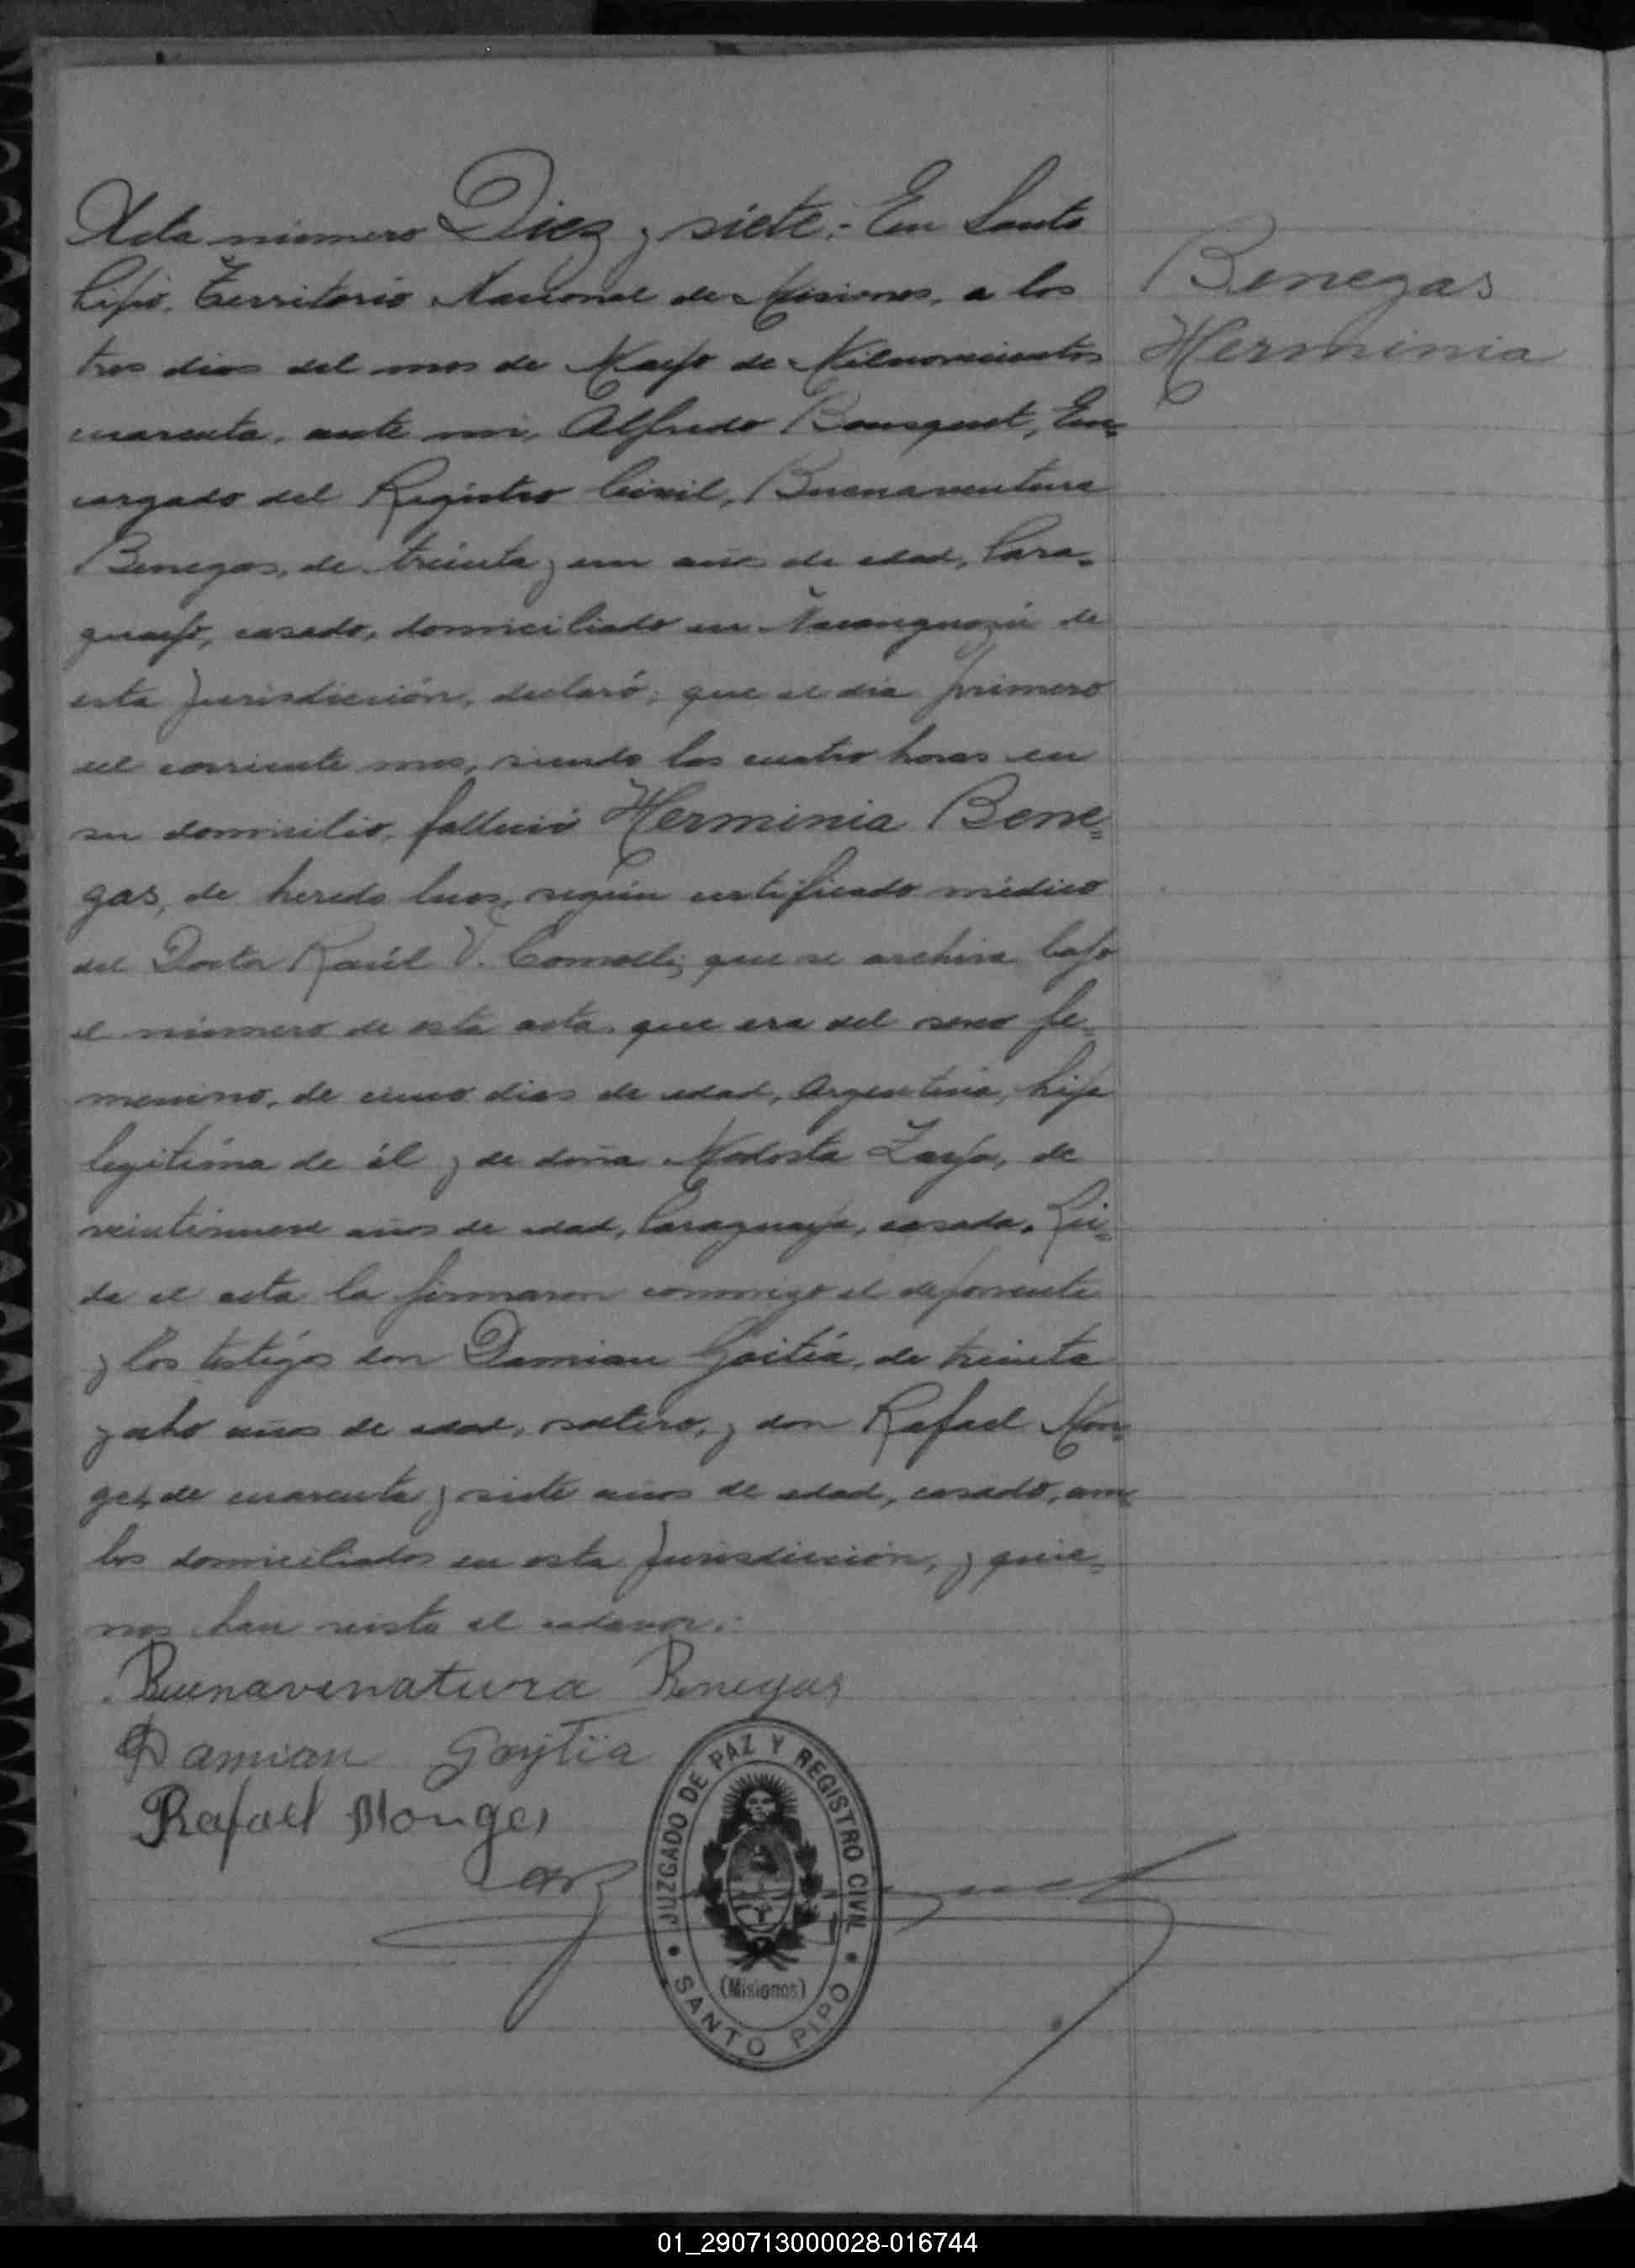 Acta número Diez y siete.- En Santo
Pipó, Territorio Nacional de Misiones, a los
tres dias del mes de Mayo de Milnovecientos
cuarenta, ante mi, Alfredo Bousquet, En=
cargado del Registro Civil, Buenaventura
Benegas, de treinta y un años de edad, Para=
guayo, casado, domiciliado en Ñacanguazú de
esta Jurisdicción, declaró; que el dia primero
del corriente mes, siendo las cuatro horas en
su domicilio, falleció Herminia Bene=
gas, de heredo lues, según certificado médico
del Doctor Raúl V. que se archiva bajo
el número de esta acta, que era del sexo fe=
menino, de cinco dias de edad, Argentina, hija
legítima de él y de doña Modesta Zaya, de
veintinueve años de edad, Paraguaya, casada. Leí=
da el acta la firmaron conmigo el deponente
y los testigos don Damian Goitía, de treinta
y ocho años de edad, soltero, y don Rafael Mon=
ges, de cuarenta y siete años de edad, casado, am=
bos domiciliados en esta Jurisdicción, y quie=
nes han visto el cadaver.-
Buenavenatura Benegas
Damian Goytïa
Rafael Monges
Benegas
Herminia
JUZGADO DE PAZ Y REGISTRO CIVIL
(Misiones)
SANTO PIPO
01_290713000028-016744